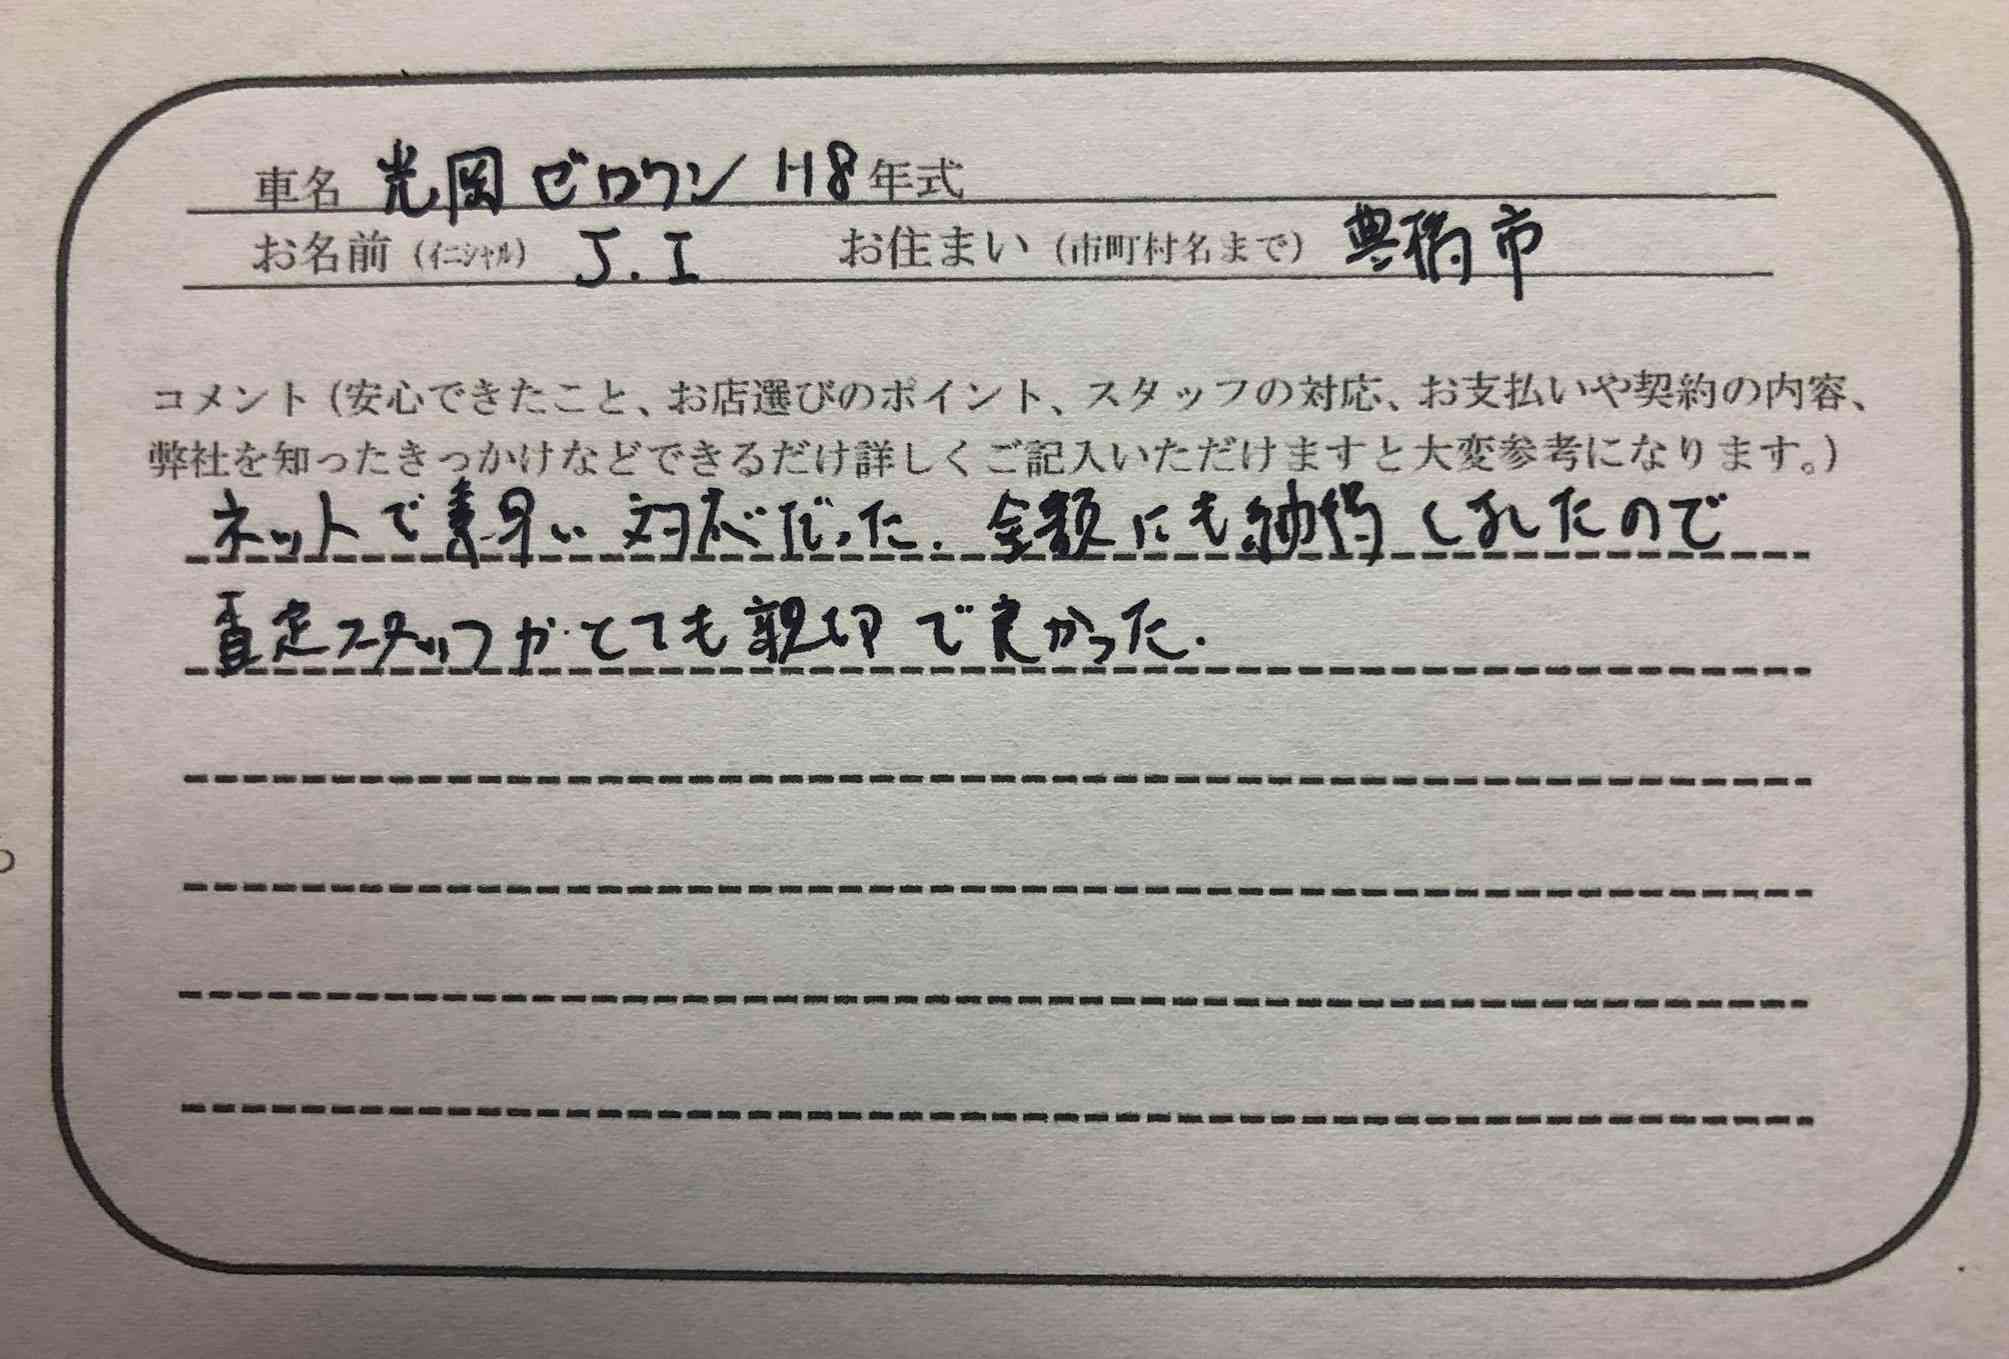 車名 光岡 ゼロワン H8年式
お名前（イニシャル） J.I お住まい（市町村名まで） 豊橋市
コメント（安心できたこと、お店選びのポイント、スタッフの対応、お支払いや契約の内容、
弊社を知ったきっかけなどできるだけ詳しくご記入いただけますと大変参考になります。）
ネットで素早い対応だった. 金額にも納得しましたので
査定スタッフがとても親切で良かった.